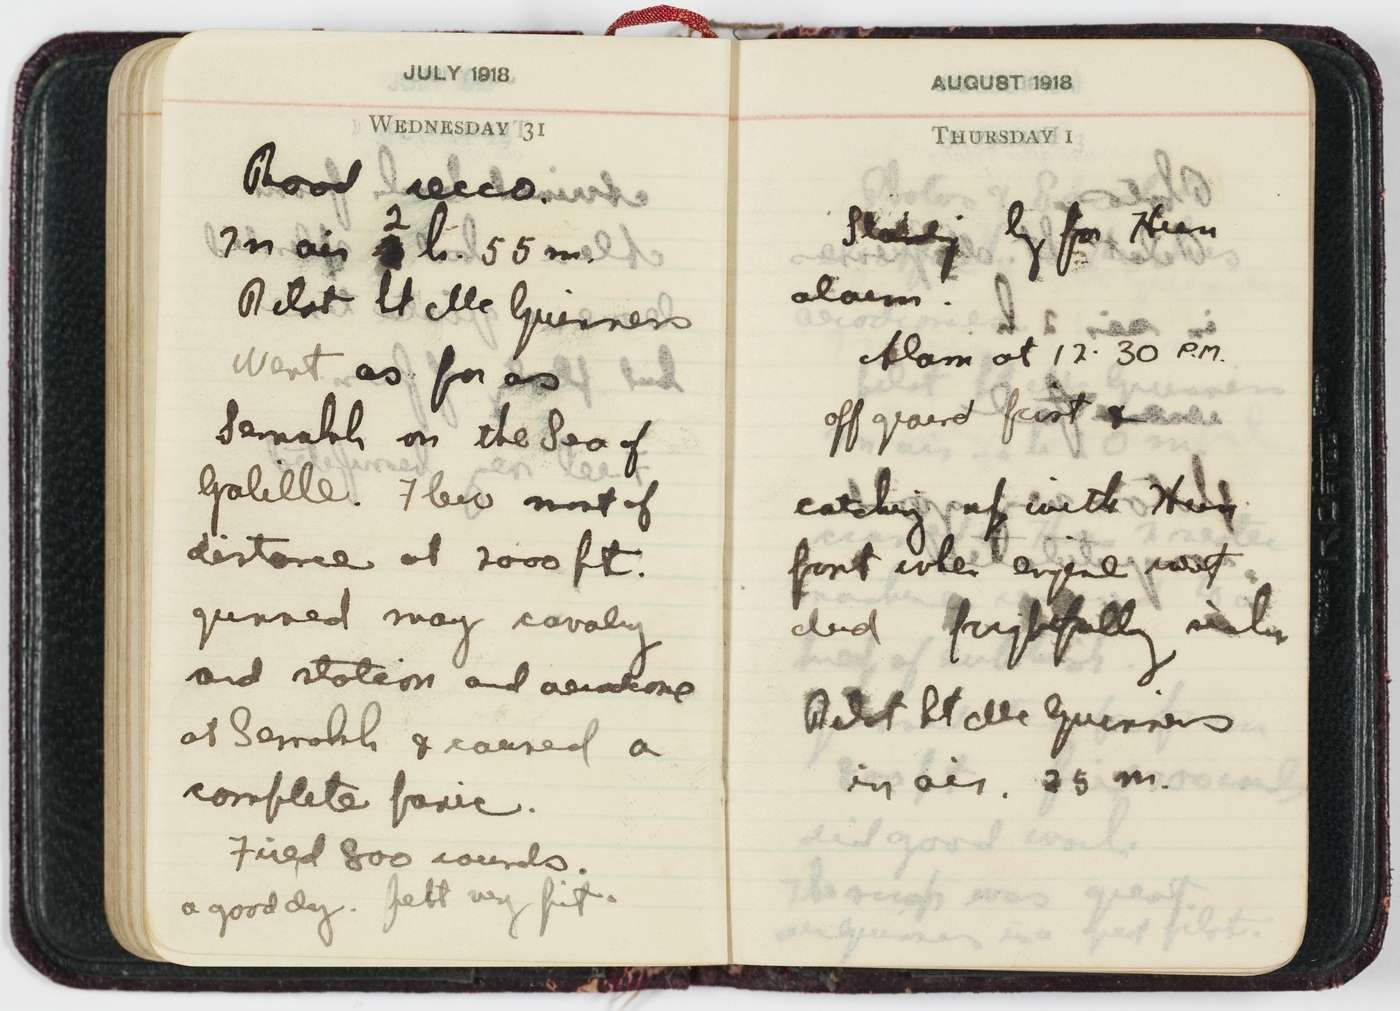 JULY 1918
WEDNESDAY 31
Road recco.
In air 2 h. 55 m.
Pilot Lt Mc Guinness
Went as far as
Semakh on the Sea of
Galille. Flew most of
distance at 2000 ft.
gunned many cavalry
and station and aerodrome
at Semakh & caused a
complete panic.
Fired 800 rounds.
a good day. felt very fit.
AUGUST 1918
THURSDAY 1
Standing by for Hun
alarm.
Alarm at 12.30 P.M.
off ground first &
catching up with Hun
fast when engine went
dud frightfully
Pilot Lt Mc Guinness
in air. 25 m.